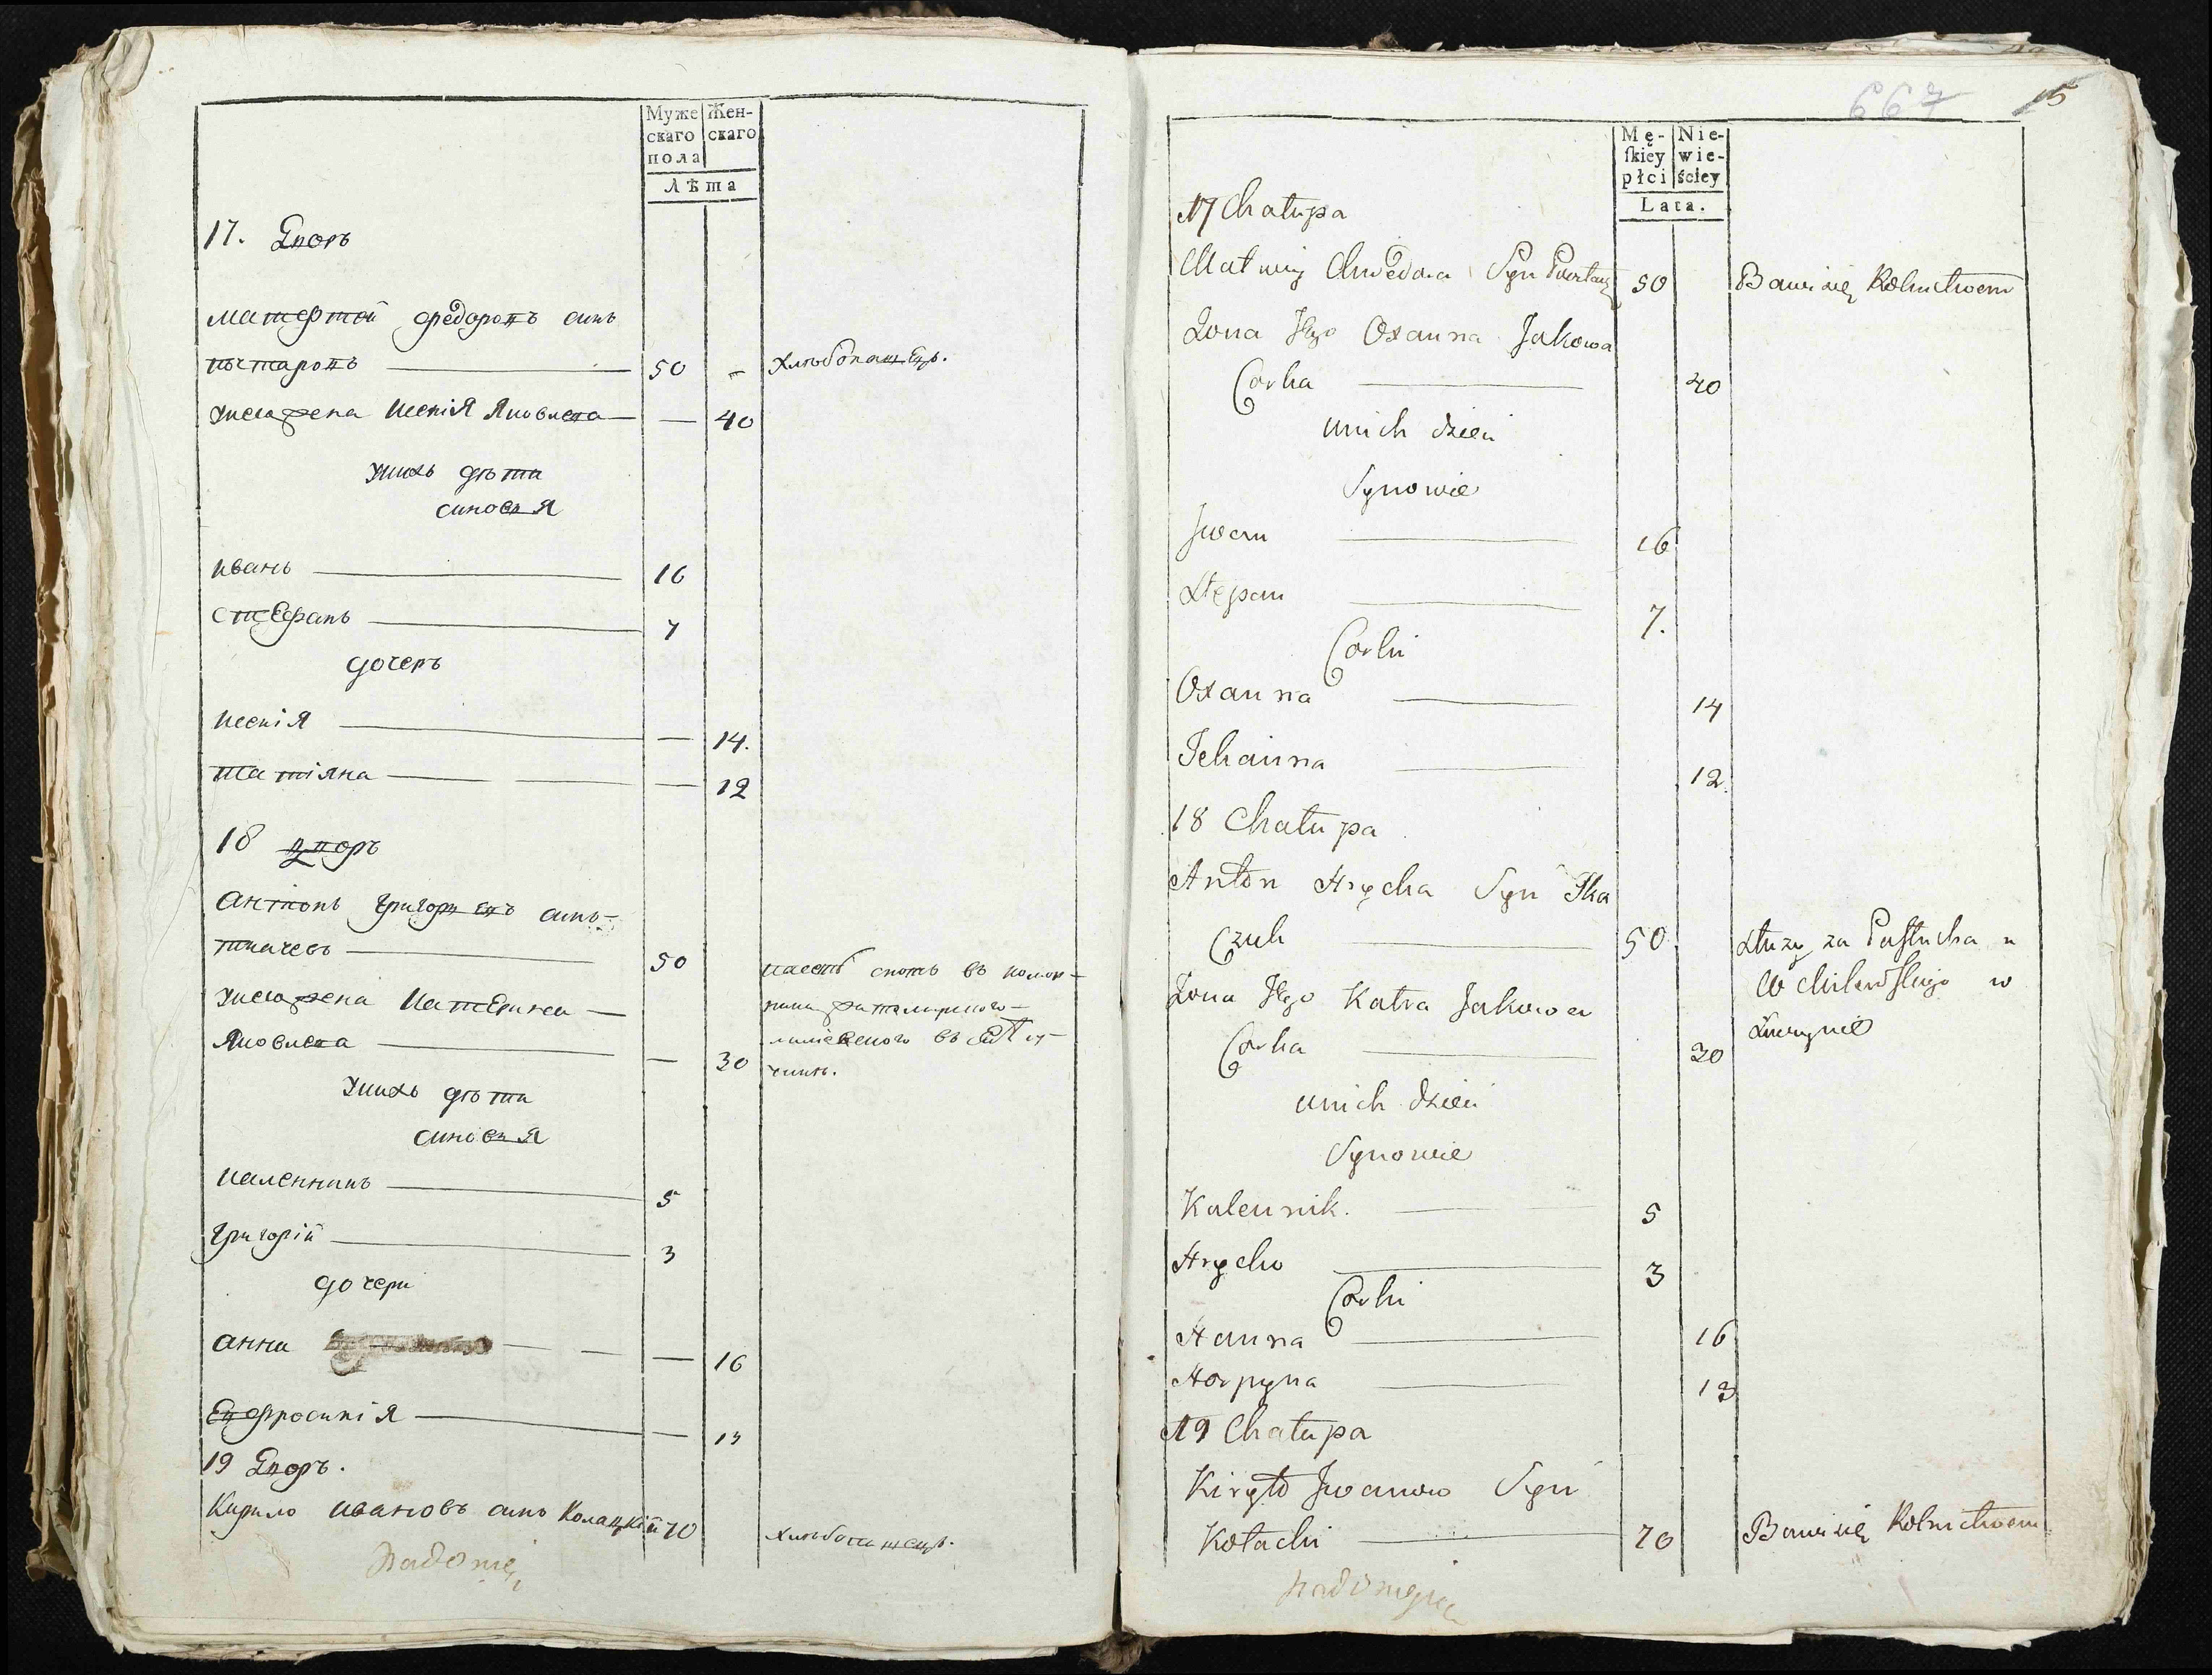 Муже
скаго
пола
Жен-
скаго
Лѣта
17. Дворъ
Матфтей Федоровъ синъ
50 - хлѣбопашецъ.
Жена Ксенія Яковлева — 40
У нихъ дѣти
синовя
Иванъ 16
Стефанъ 7
дочеръ
Ксенія — 14.
Татіяна — 12
18 дворъ
Антонъ Григоръевъ синъ
Ткачевъ 50
пасетъ скотъ въ
Жена Катерина
Яковлева — 30
У нихъ дѣти
синовя
Каленникъ 5
Григорій 3
дочери
Анна — 16
Евфросинія — 13
19 Дворъ.
Кирило Ивановъ синъ Колацкій 70 хлѣбопашецъ.
667 15
Mę-
skiey
płci
Nie-
wie-
ściey
Lata.
17 Chałupa
Matwiy Chwedora Syn 50 Bawi się Rolnictwem
Żona Jego Oxanna Jakowa
Corka 40
u nich dzieci
Synowie
Jwan 16
Stepan 7.
Corki
Oxanna 14
12.
18 Chałupa
Anton Hrycka Syn Tka
Czuk 50 Służy za Pastucha u
w
Żona Jego Katra Jakowa
Corka 30
u nich dzieci
Synowie
Kalennik. 5
Hrycko 3
Corki
Hanna 16
Horpyna 13
19 Chałupa
Kiryło Jwanow Syn
Kołacki 70 Bawi się Rolnictwem